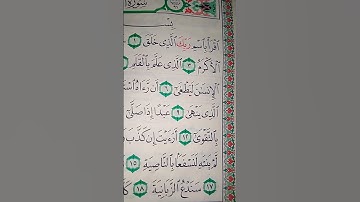 سُورَةُ
بِسْ
ٱقْرَأْ بِٱسْمِ رَبِّكَ ٱلَّذِى خَلَقَ ١
ٱلْأَكْرَمُ ٣ ٱلَّذِى عَلَّمَ بِٱلْقَلَمِ
ٱلْإِنسَٰنَ لَيَطْغَىٰٓ ٦ أَن رَّءَاهُ
ٱلَّذِى يَنْهَىٰ ٩ عَبْدًا إِذَا صَلَّىٰٓ
بِٱلتَّقْوَىٰٓ ١٢ أَرَءَيْتَ إِن كَذَّبَ
لَمْ يَنتَهِ لَنَسْفَعًۢا بِٱلنَّاصِيَةِ ١٥
١٧ سَنَدْعُ ٱلزَّبَانِيَةَ ١٨